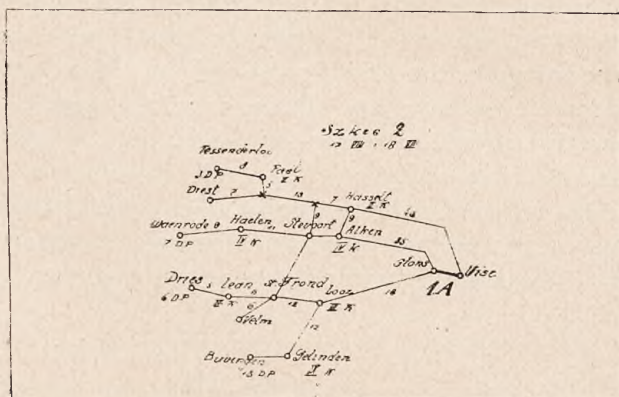 Szkic 2
17 VIII i 18 VIII
Tessenderloo
3 DP
8
Pael
II K
5
Diest
7
13
7
Hasselt
I K
24
Waenrode
7 DP
9
Haelen
IV K
Stevoort
9
9
Alken
IV K
25
Glons
Vise
1A
Dries
6 DP
5
Lean
IX K
8
6
St. Trond
Velm
12
Looz
III K
18
12
Buvingen
13 DP
Gelinden
X K